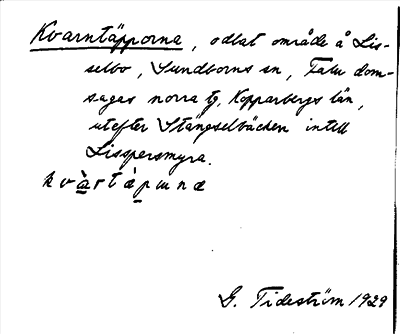 Kvarntäpporna, odlat område å Lis-
selbo, Sundborns sn, Falu dom-
sagas norra tg, Kopparbergs län,
utefter Stängselbäcken intill
Lisspersmyra.
kvàrtàpunæ
G. Tideström 1929